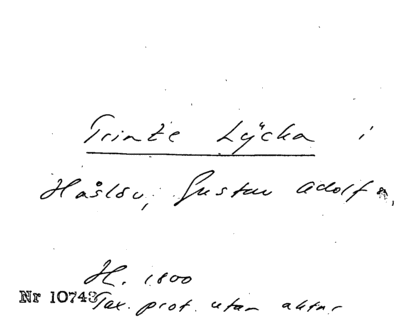 Trinte Lÿcka i
Håslöv, Gustav Adolf
H. 1800
Nr 10743 Tax. prot. utan aktnr